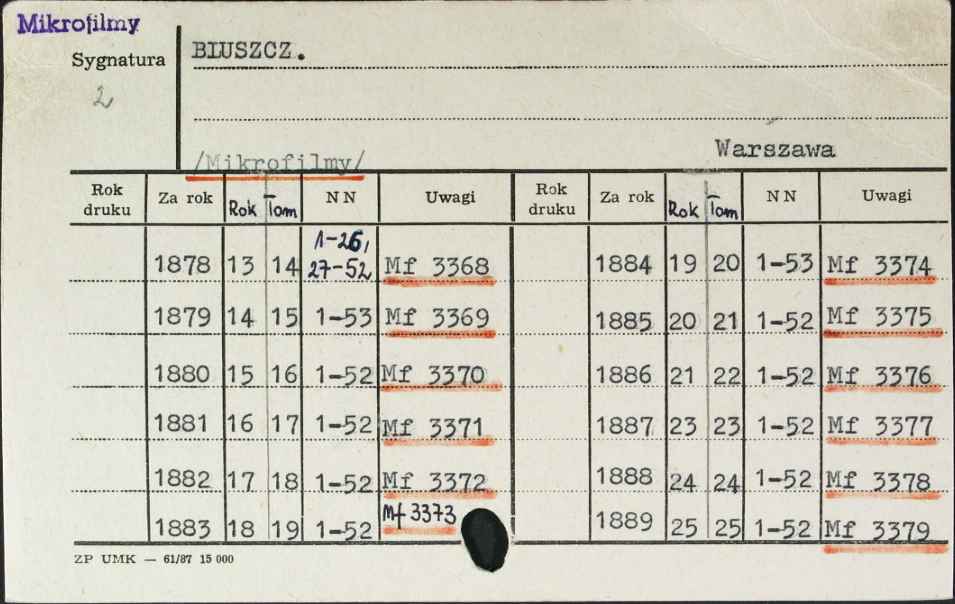 Mikrofilmy
Sygnatura
2
BIUSZCZ.
Warszawa
/Mikrofilmy/
Rok druku Za rok Rok Tom NN Uwagi Rok druku Za rok Rok Tom NN Uwagi
1878 13 14 1-26, 27-52 Mf 3368 1884 19 20 1-53 Mf 3374
1879 14 15 1-53 Mf 3369 1885 20 21 1-52 Mf 3375
1880 15 16 1-52 Mf 3370 1886 21 22 1-52 Mf 3376
1881 16 17 1-52 Mf 3371 1887 23 23 1-52 Mf 3377
1882 17 18 1-52 Mf 3372 1888 24 24 1-52 Mf 3378
1883 18 19 1-52 Mf 3373 1889 25 25 1-52 Mf 3379
ZP UMK — 61/87 15 000